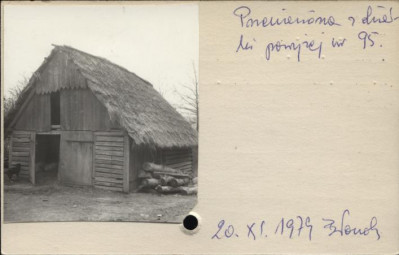 Przeniesiona z dział-
ki powyżej nr 95.
20. XI. 1979